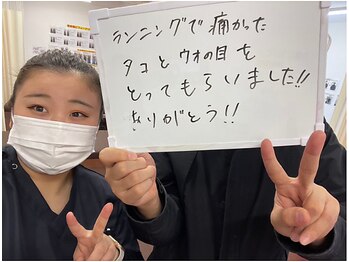 ランニングで痛かった
タコとウオの目を
とってもらいました!!
ありがとう!!